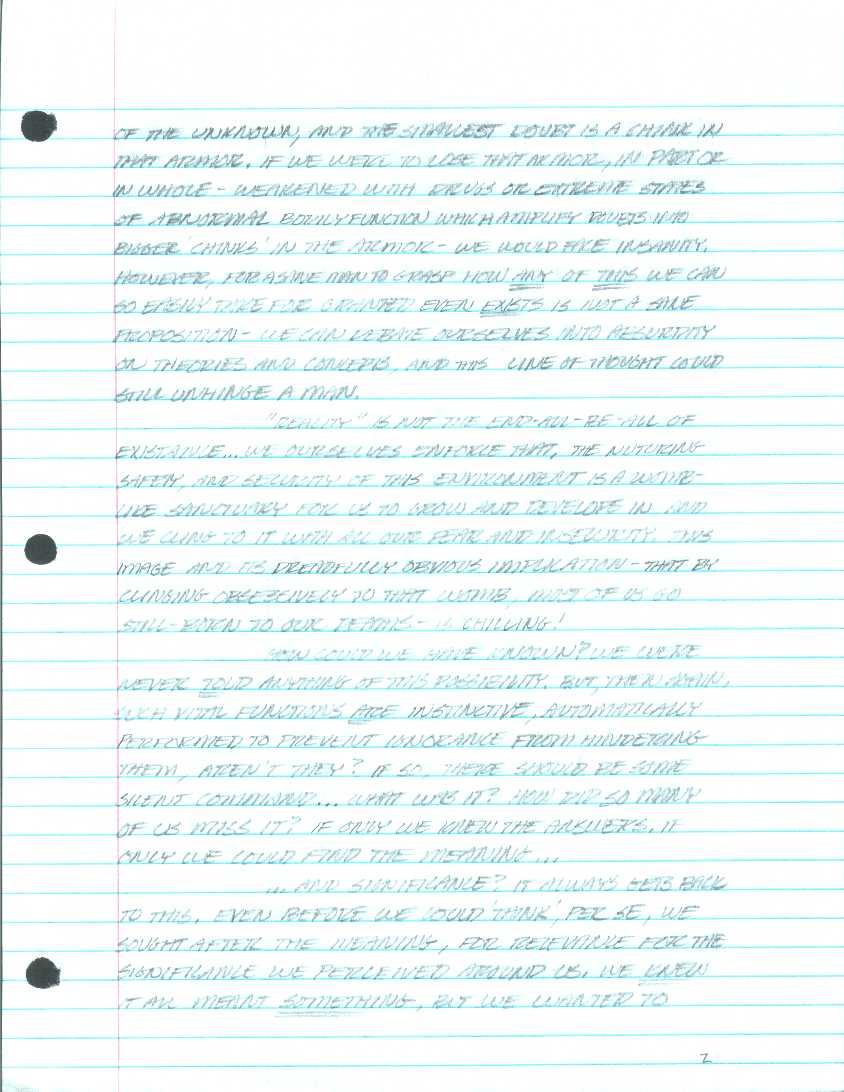 OF THE UNKNOWN, AND THE SMALLEST DOUBT IS A CHINK IN
THAT ARMOR. IF WE WERE TO LOSE THAT ARMOR, IN PART OR
IN WHOLE - WEAKENED WITH DRUGS OR EXTREME STATES
OF ABNORMAL BODILY FUNCTION WHICH AMPLIFY DOUBTS INTO
BIGGER 'CHINKS' IN THE ARMOR - WE WOULD FACE INSANITY.
HOWEVER, FOR A SANE MAN TO GRASP HOW ANY OF THIS WE CAN
SO EASILY TAKE FOR GRANTED EVEN EXISTS IS NOT A SANE
PROPOSITION - WE CAN DEBATE OURSELVES INTO ABSURDITY
ON THEORIES AND CONCEPTS, AND THIS LINE OF THOUGHT COULD
STILL UNHINGE A MAN.
"REALITY" IS NOT THE END-ALL-BE-ALL OF
EXISTANCE... WE OURSELVES ENFORCE THAT. THE NUTURING
SAFETY, AND SECURITY OF THIS ENVIRONMENT IS A WOMB-
LIKE SANCTUARY FOR US TO GROW AND DEVELOPE IN AND
WE CLING TO IT WITH ALL OUR FEAR AND INSECURITY. THIS
IMAGE AND ITS DREADFULLY OBVIOUS IMPLICATION - THAT BY
CLINGING OBSESSIVELY TO THAT WOMB, MOST OF US GO
STILL-BORN TO OUR DEATHS - IS CHILLING!
HOW COULD WE HAVE KNOWN? WE WERE
NEVER TOLD ANYTHING OF THIS POSSIBILITY. BUT, THEN AGAIN,
SUCH VITAL FUNCTIONS ARE INSTINCTIVE, AUTOMATICALLY
PERFORMED TO PREVENT IGNORANCE FROM HINDERING
THEM, AREN'T THEY? IF SO, THERE SHOULD BE SOME
SILENT COMMAND... WHAT WAS IT? HOW DID SO MANY
OF US MISS IT? IF ONLY WE KNEW THE ANSWERS. IF
ONLY WE COULD FIND THE MEANING...
...AND SIGNIFICANCE? IT ALWAYS GETS BACK
TO THIS. EVEN BEFORE WE COULD 'THINK', PER SE, WE
SOUGHT AFTER THE MEANING, FOR RELEVANCE FOR THE
SIGNIFICANCE WE PERCEIVED AROUND US. WE KNEW
IT ALL MEANT SOMETHING, BUT WE WANTED TO
2